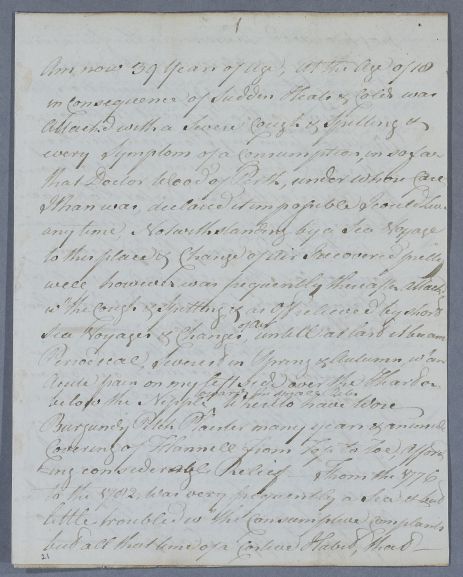 1
Am now 39 Years of Age, At the Age of 18
in Consequence of Sudden Heats & Colds was
Attackd with a Severe Cough & Spitting &
every Symptom of a Consumption, in so far
that Doctor Wood of Perth, under whose Care
I than was, declared it impossible I could live
any time Notwithstanding by a Sea Voyage
to this place & Change of Air I recovered pretty
well however was frequently thereafter Attackd
wt the Cough & Spitting & as oft relieved by short
Sea Voyages & Changes of Air untill at last it became
Periodical, Severest in Spring & Autumn wt an
Acute pain on my left Side over the
below the Nipple
where I have Wore
Burgundy Pitch Plaister many years & an
Covering of Flannell from Top to Toe Afford
-ing considerable Relief From the 1776
to the 1782, was very frequently a Sea & but
little troubled wt the Consumptive Complaints
but all that time of a Costive Habit, that
21